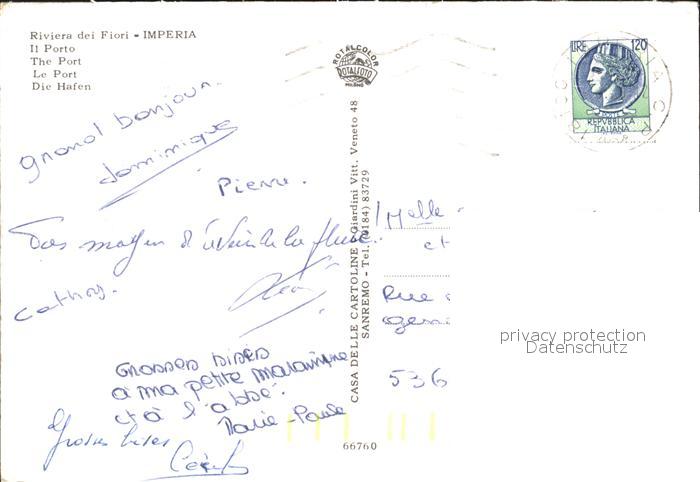 Riviera dei Fiori - IMPERIA
Il Porto
The Port
Le Port
Die Hafen
ROTALCOLOR
ROTALFOTO
MILANO
LIRE 120
POSTE
REPVBBLICA
ITALIANA
grand bonjour.
dominique
Pierre.
Pas moyen d'
Cathy.
GROSSES BISES
à ma petite
et à l'abbé.
Marie-Paule
Grosses bises
CASA DELLE CARTOLINE - Giardini Vitt. Veneto 48
SANREMO - Tel. (0184) 83729
Melle
et
Rue
536
66760
privacy protection
Datenschutz